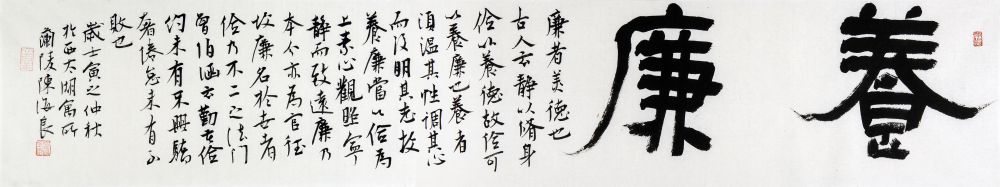 養廉
廉者美德也
古人云静以脩身
儉以養德故儉可
以養廉也養者
須溫其性調其心
而後明其志故
養廉當以儉為
上素心觀照寧
静而致遠廉乃
本分亦為官径
求廉名於世者
儉乃不二之法门
曾伯涵云勤苦儉
约未有不興驕
奢倦怠未有不
敗也
歲壬寅之仲秋
於西太湖寓所
蘭陵陳海良